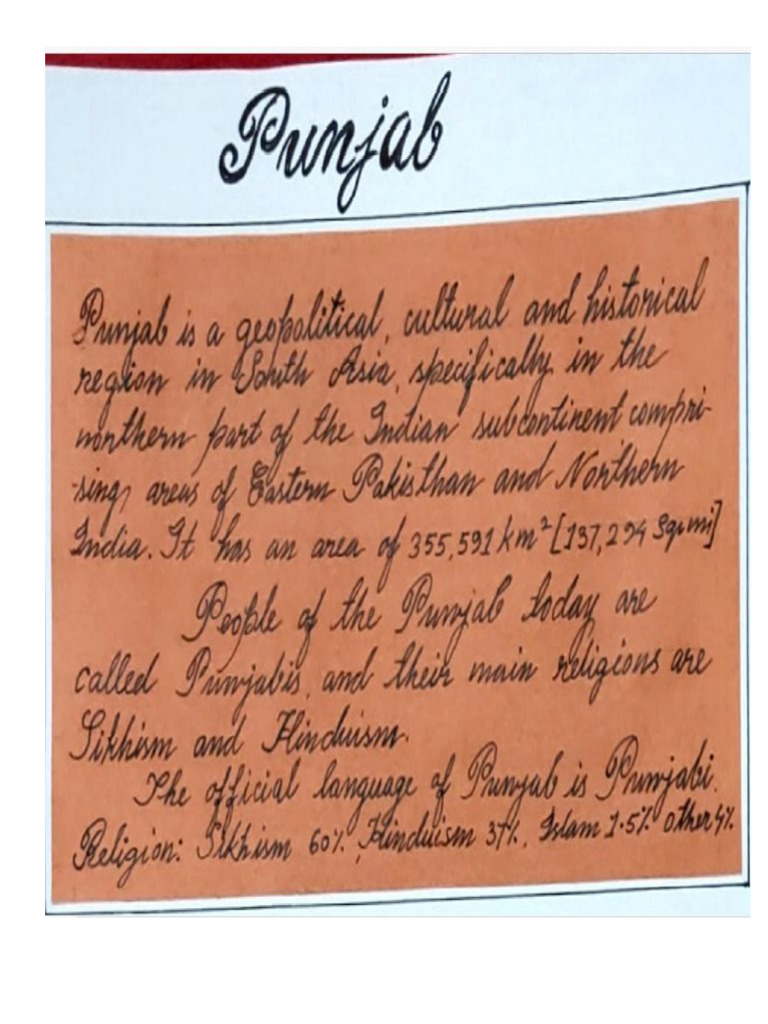 Punjab
Punjab is a geopolitical, cultural and historical
region in South Asia, specifically in the
northern part of the Indian subcontinent compri-
-sing areas of Eastern Pakisthan and Northern
India. It has an area of 355,591 km² [137,294 Sq mi]
People of the Punjab today are
called Punjabis, and their main religions are
Sikhism and Hinduism.
The official language of Punjab is Punjabi.
Religion: Sikhism 60%, Hinduism 37%, Islam 1.5% other 4%.